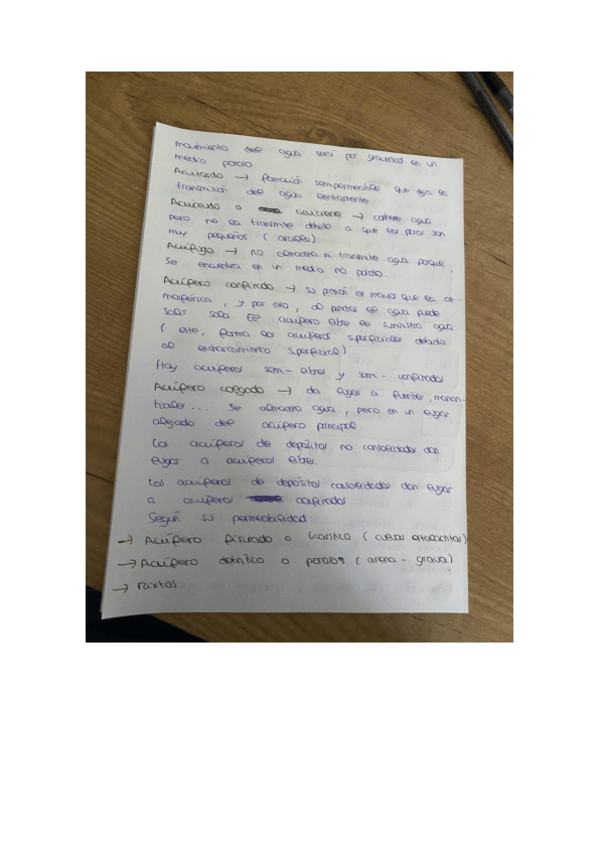 movimiento del agua será por gravedad en un
medio poroso.
Acuitardo → formación semipermeable que deja la
transmisión del agua lentamente
Acuicludo o acuicierre → contiene agua
pero no la transmite debido a que los poros son
muy pequeños (arcilla)
Acuífugo → no almacena ni transmite agua porque
se encuentra en un medio no poroso.
Acuífero confinado → su presión es mayor que la at-
mosférica, y por eso, al pinchar el agua puede
salir sola. El acuífero libre le suministra agua
(este, forma los acuíferos superficiales debido
al encharcamiento superficial)
Hay acuíferos semi-libres y semi-confinados
Acuífero colgado → da lugar a fuentes, manan-
tiales... Se almacena agua, pero en un lugar
alejado del acuífero principal
Los acuíferos de depósitos no consolidados dan
lugar a acuíferos libres.
Los acuíferos de depósitos consolidados dan lugar
a acuíferos confinados
Según su permeabilidad:
→ Acuífero fisurado o karstico (cuevas estalactitas)
→ Acuífero detrítico o poroso (arena - grava)
→ mixtos